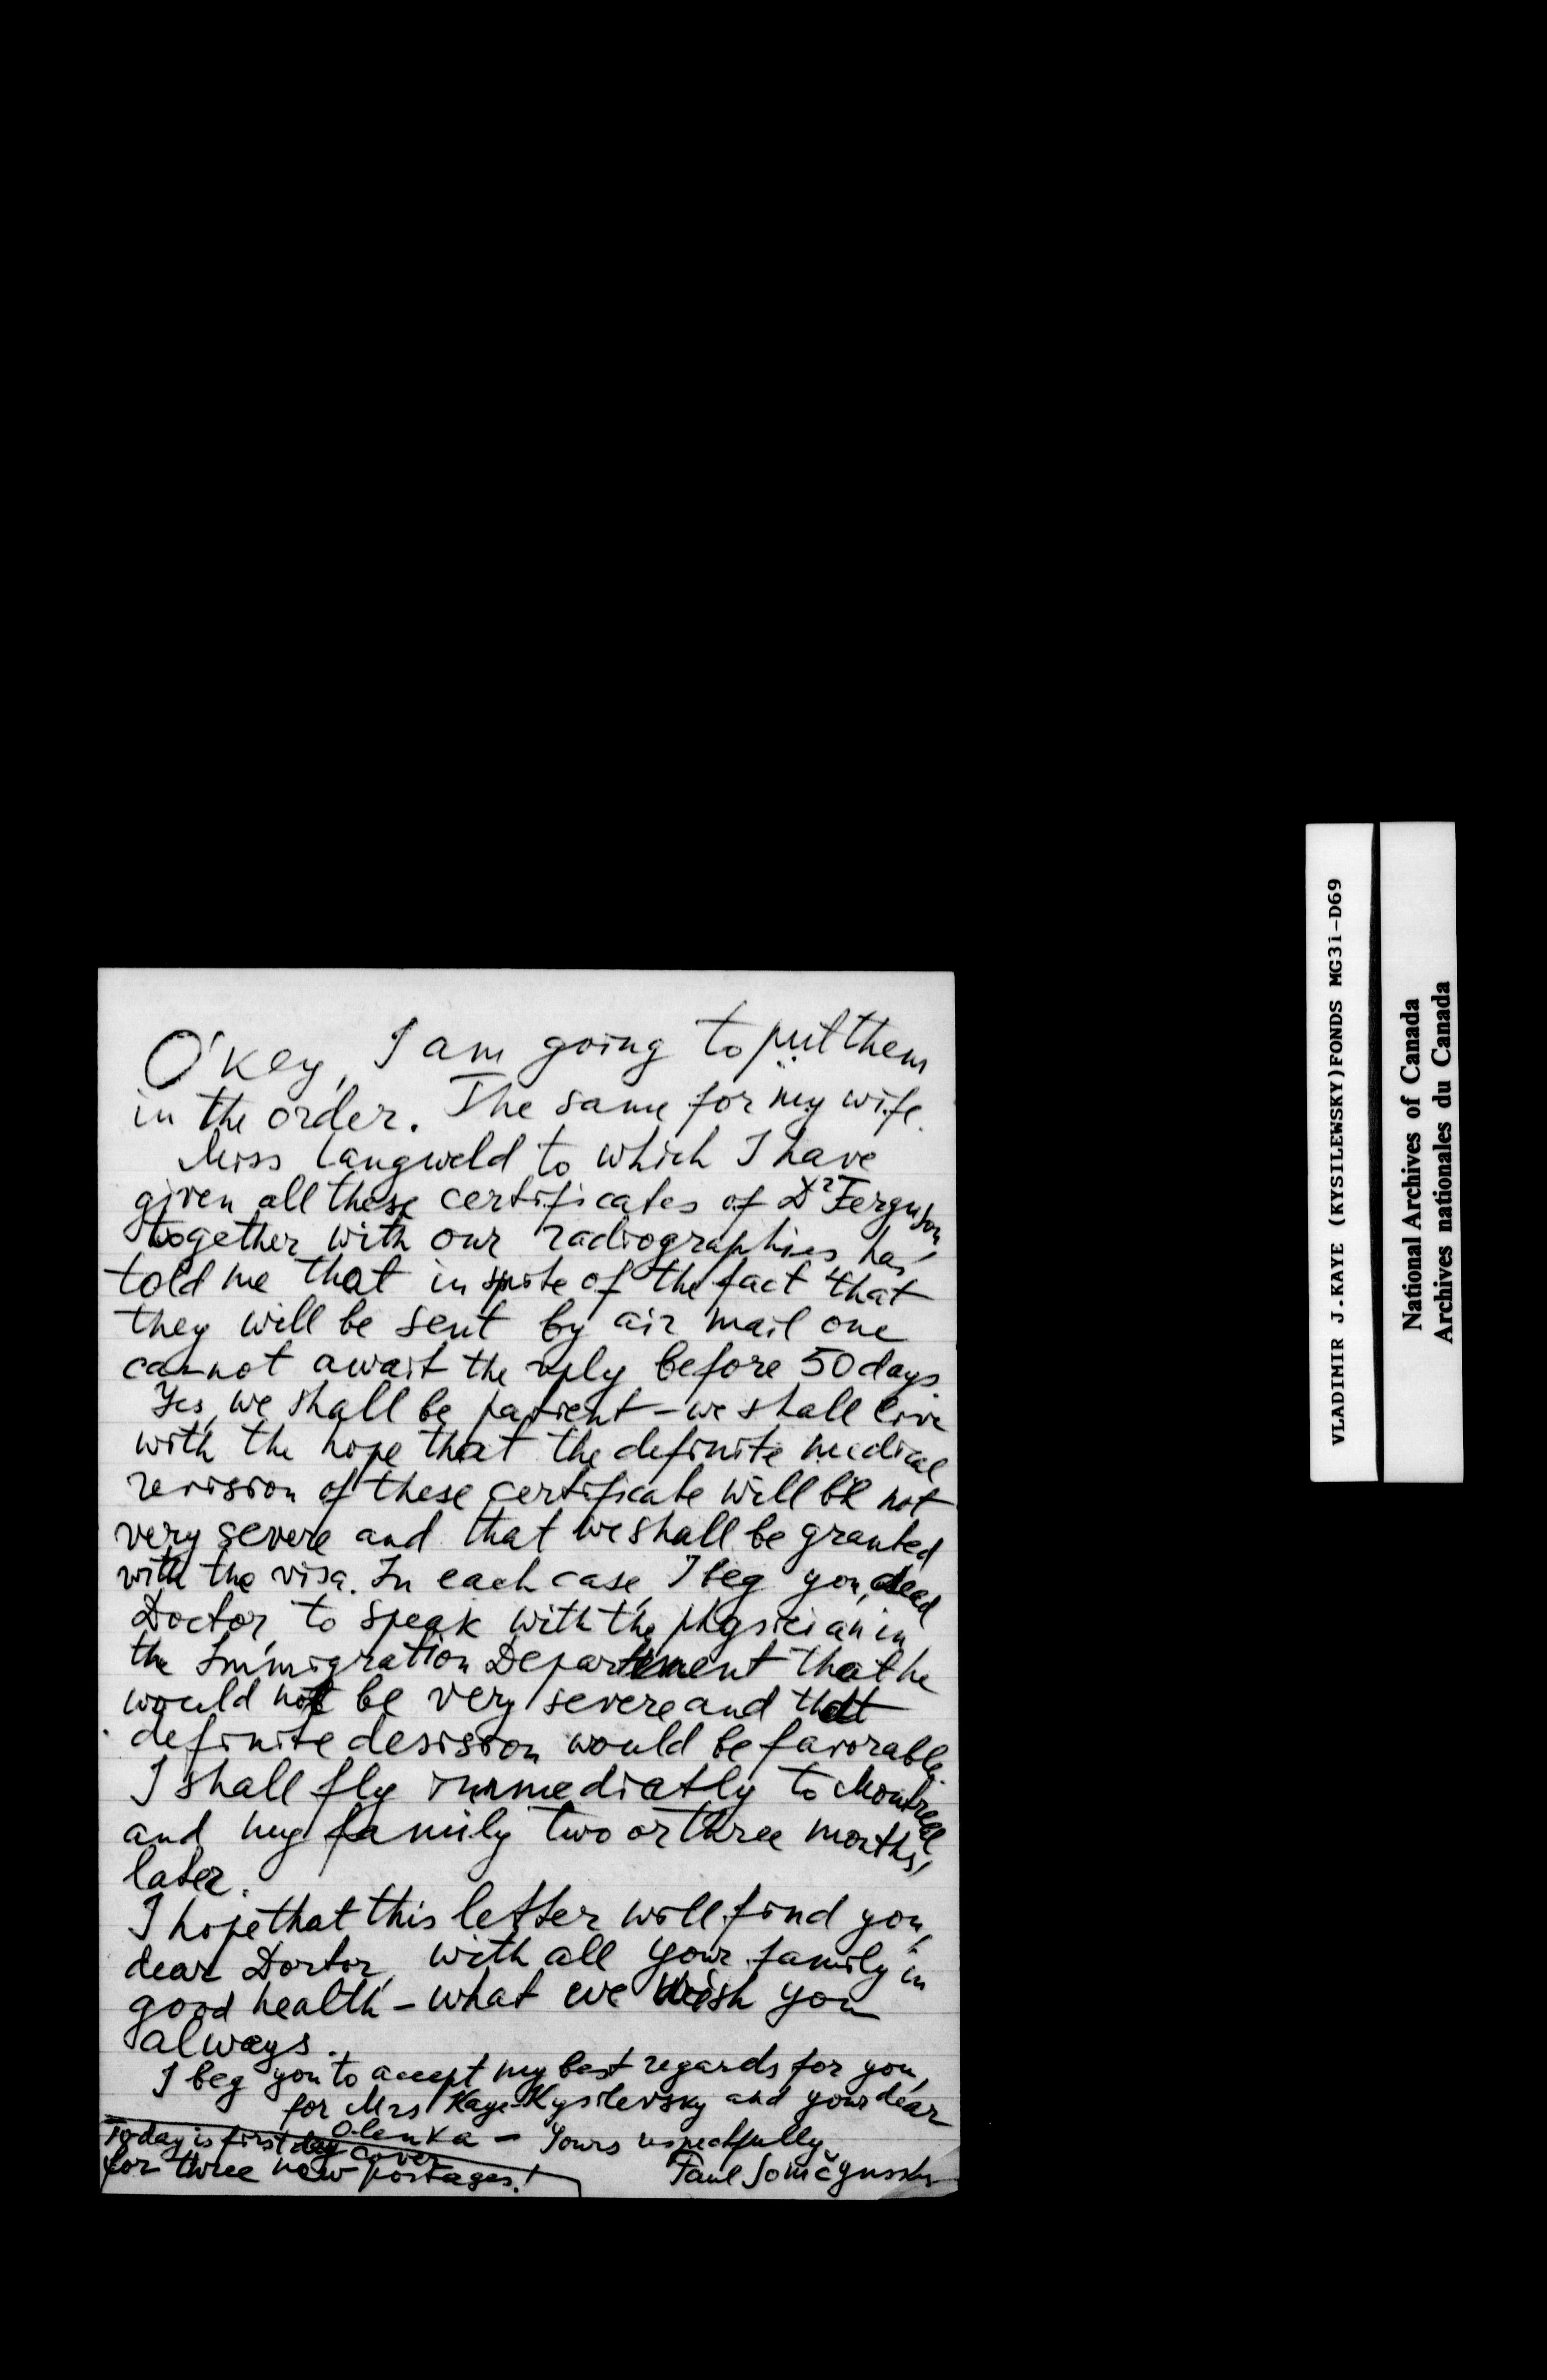 O'key, I am going to put them
in the order. The same for my wife.
Miss Langweld to which I have
given all these certificates of Dr Ferguson,
together with our radiographies has
told me that in spite of the fact that
they will be sent by air mail one
cannot await the reply before 50 days.
Yes, we shall be patient – we shall live
with the hope that the definite medical
revision of these certificate will be not
very severe and that we shall be granted
with the visa. In each case, I beg you, dear
Doctor, to speak with the physician in
the Immigration Department that he
would not be very severe and that
definite desision would be favorable.
I shall fly immediatly to Montreal
and my family two or three months,
later.
I hope that this letter will find you,
dear Doctor, with all your family in
good health – what we wish you
always.
I beg you to accept my best regards for you,
for Mrs Kaye-Kysilevsky and your dear
Olenka – Yours respectfully
Paul
Today is first day cover
for three new postages!
VLADIMIR J.KAYE (KYSILEWSKY)FONDS MG31-D69
National Archives of Canada
Archives nationales du Canada